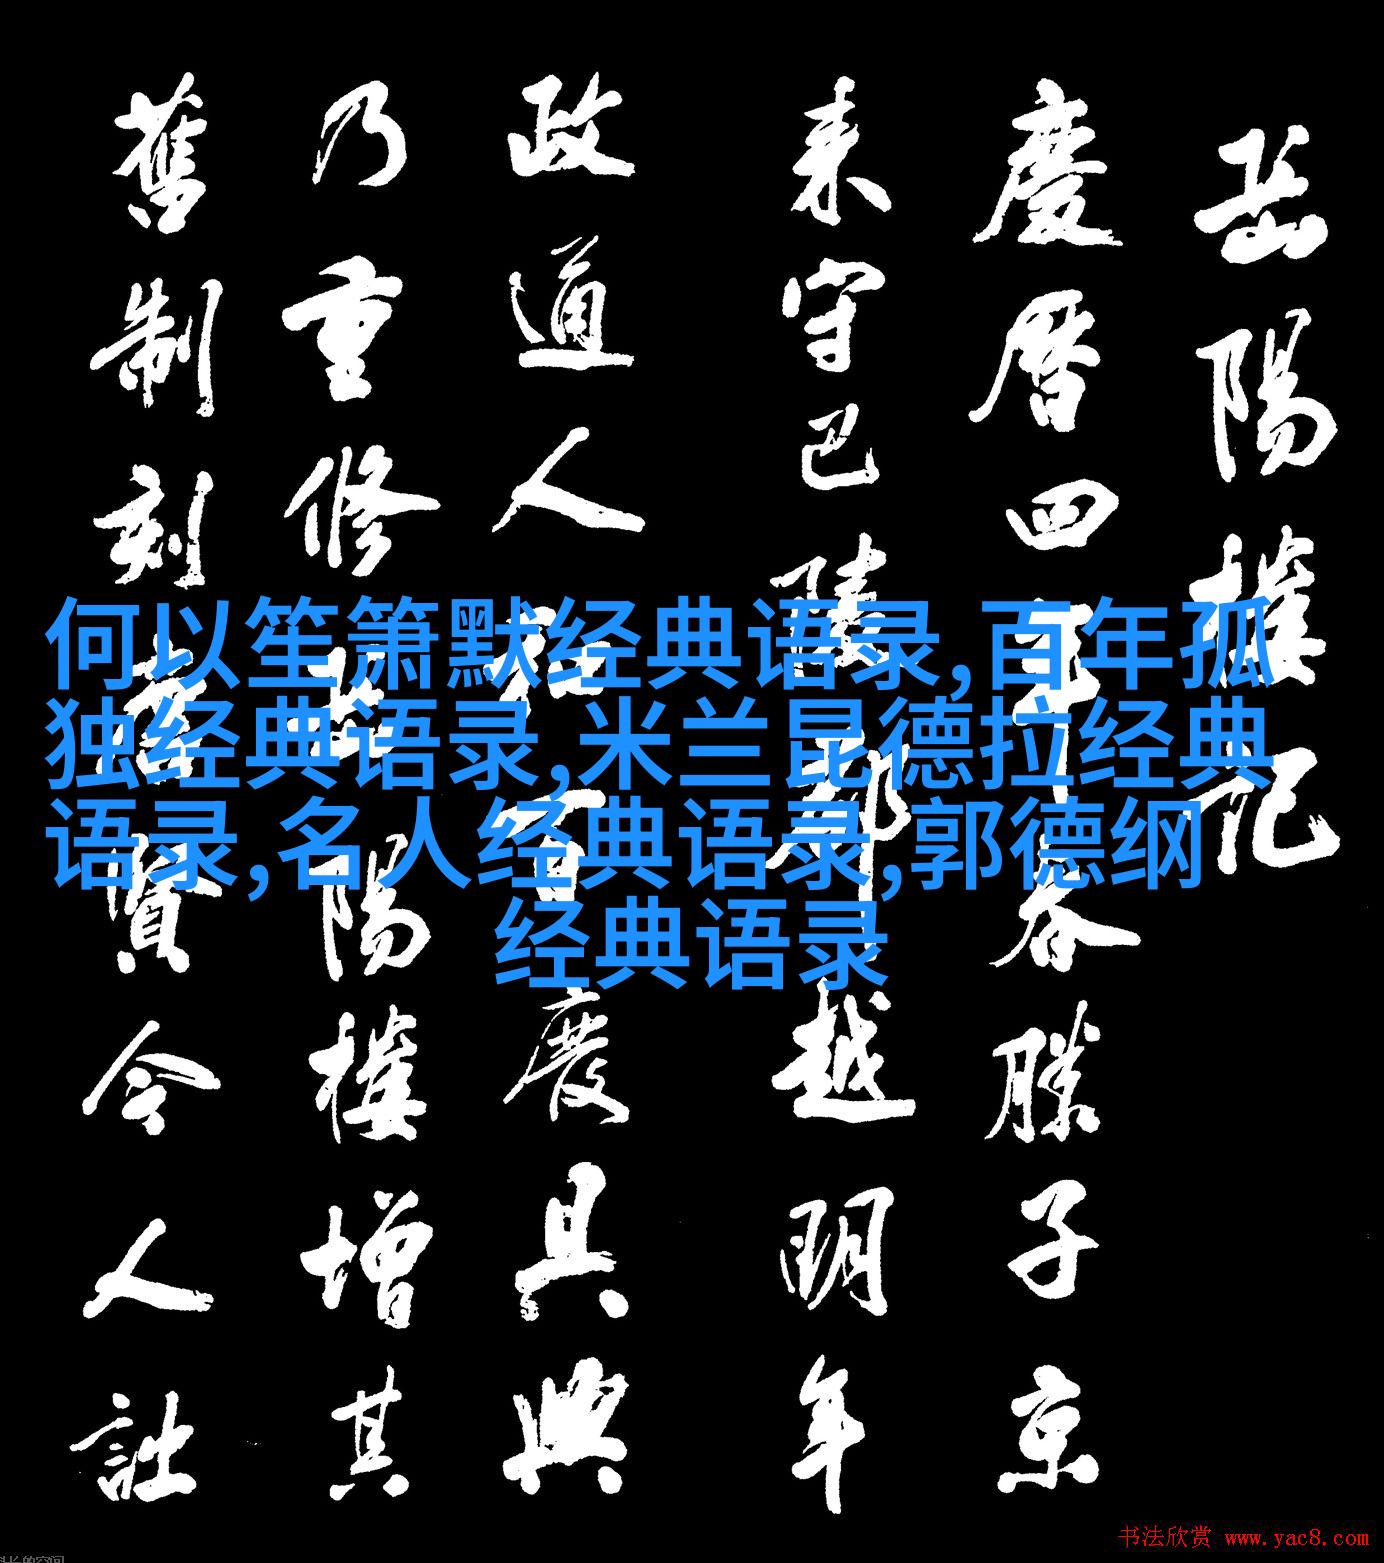 岳陽樓記
慶曆四年春滕子京
来守巴陵郡越明年
政通人和百廢具興
乃重修岳陽樓增其
舊制刻唐賢今人詩
何以笙箫默经典语录,百年孤
独经典语录,米兰昆德拉经典
语录,名人经典语录,郭德纲
经典语录
书法欣赏 www.yac8.com